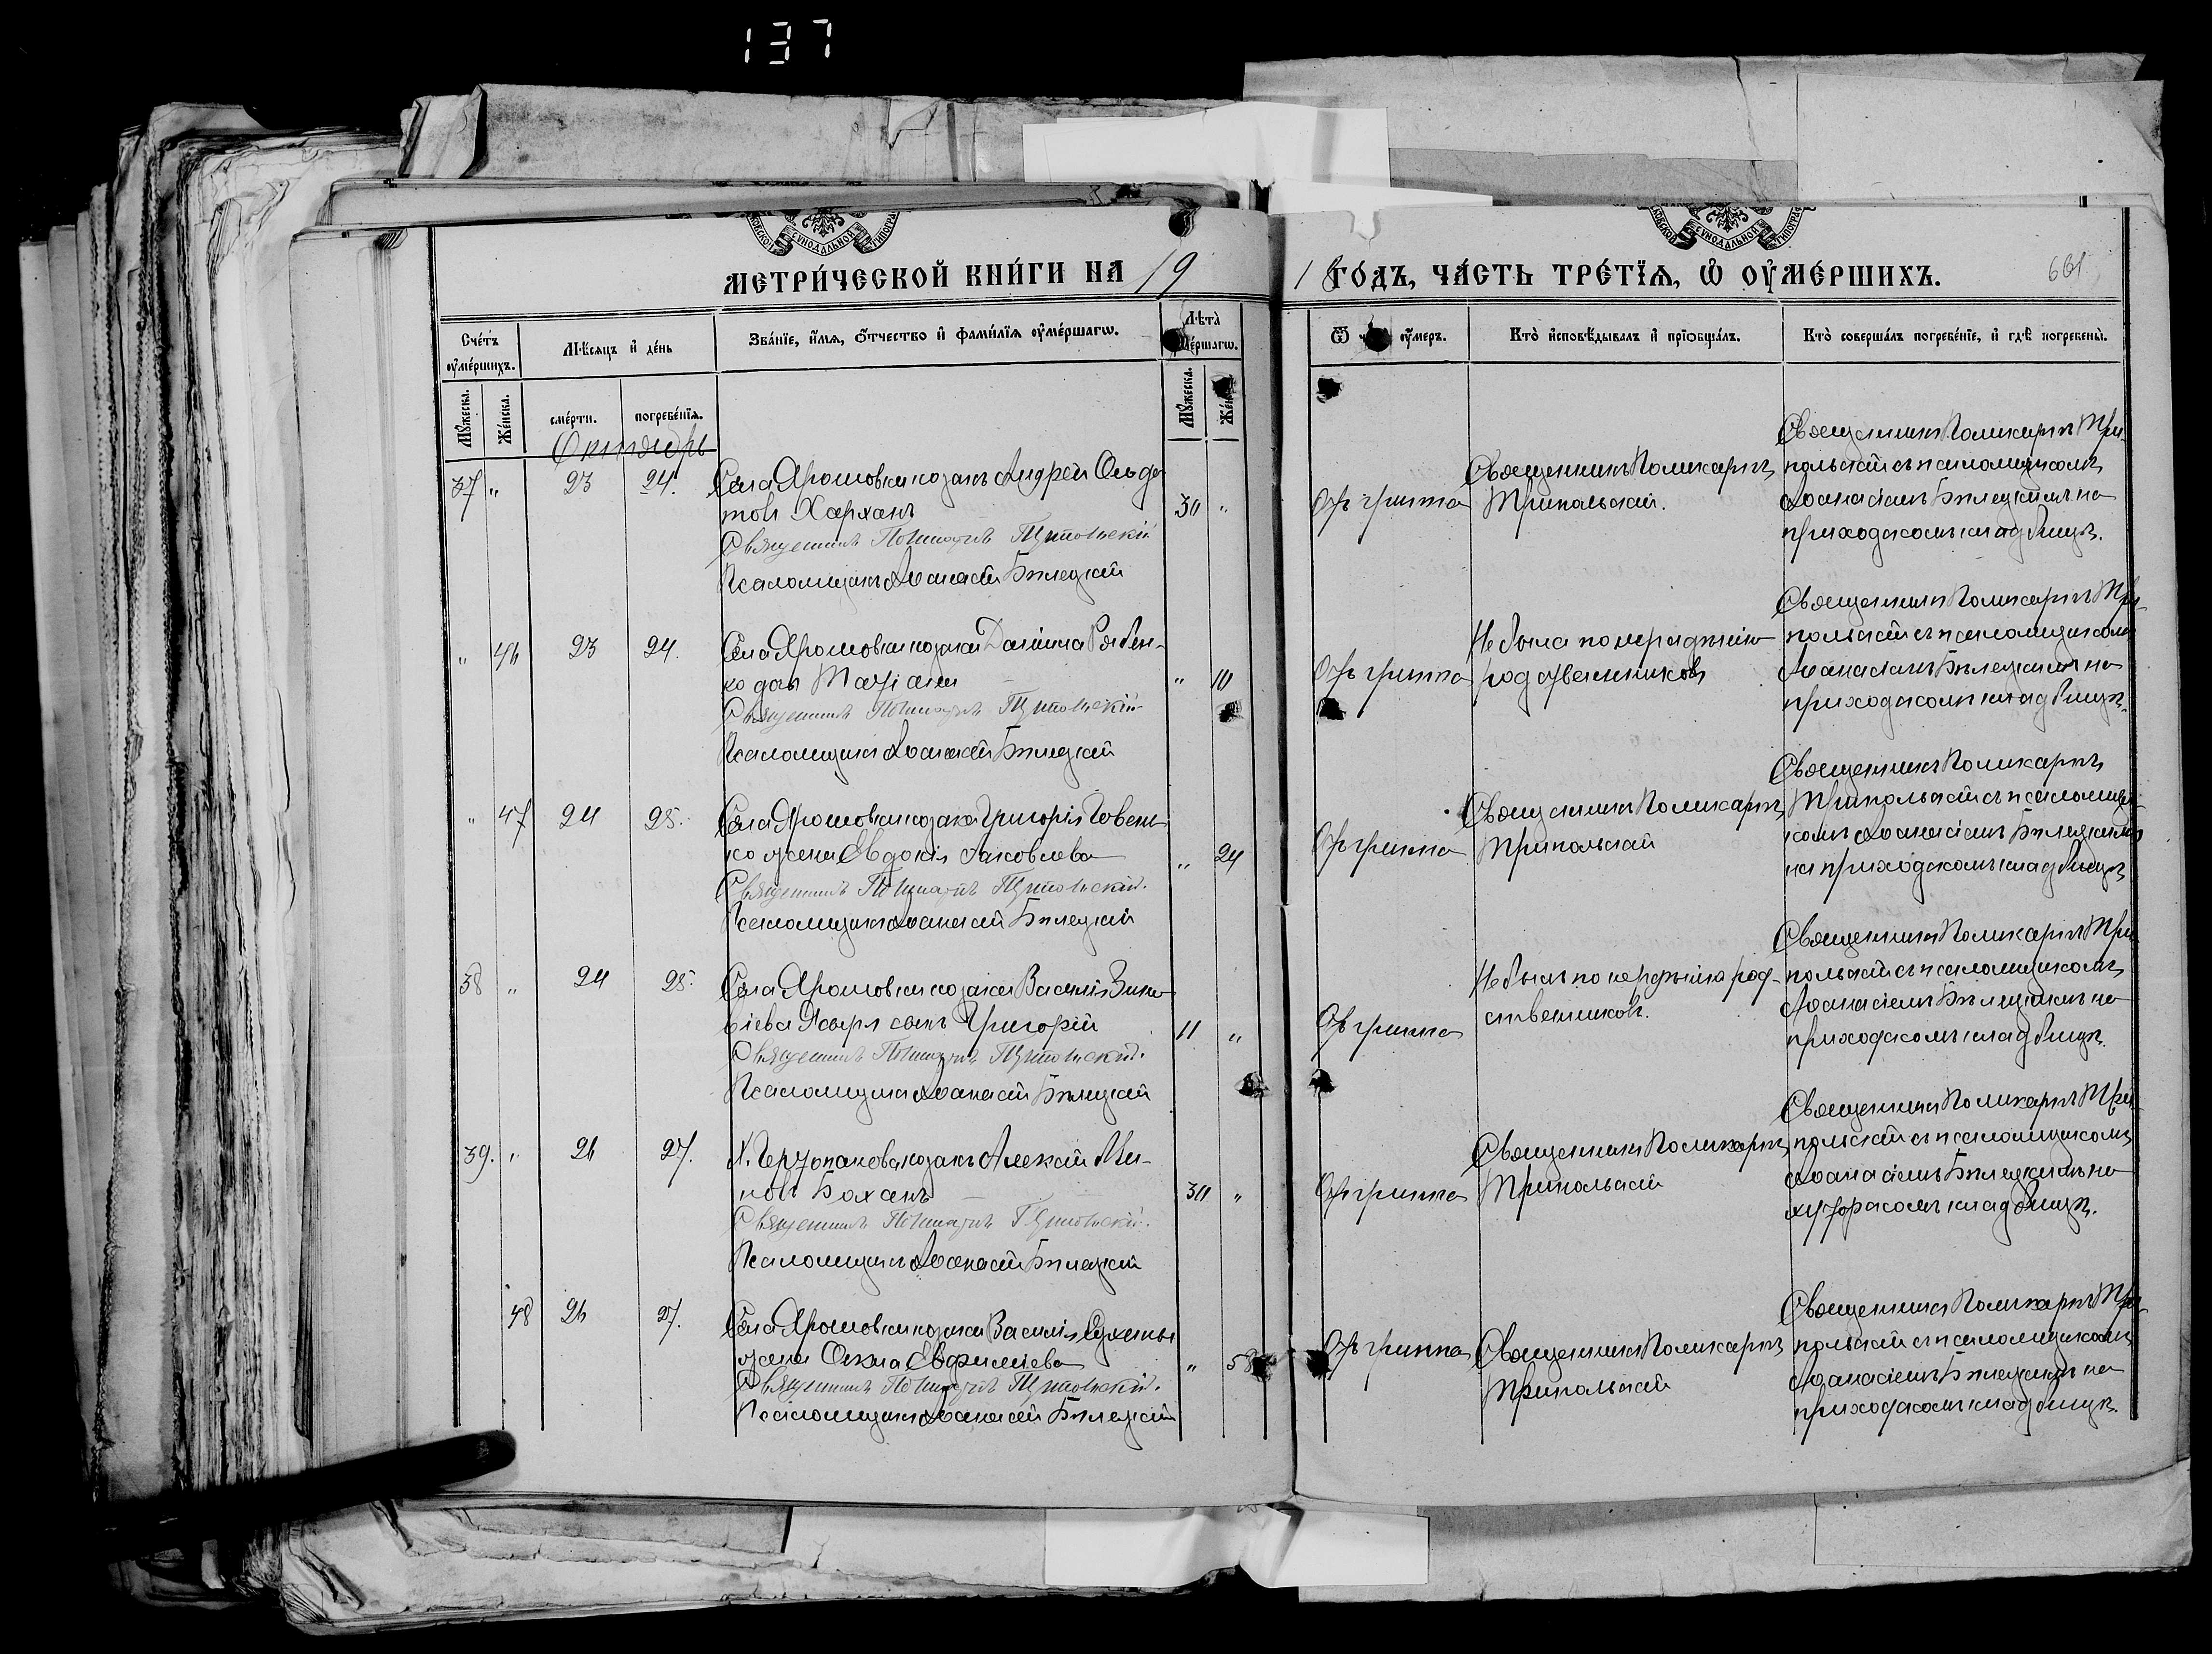 137
МОСКОВСКОЙ СѴНОДАЛЬНОЙ ТИПОГРАФ
СѴНОДАЛЬНОЙ ТИПОГРА
МЕТРИ́ЧЕСКОЙ КНИ́ГИ НА 1918 ГО́ДЪ, ЧА́СТЬ ТРЕ́ТЇЯ, Ѡ҆ ОУ҆МЕ́РШИХЪ.
661
Сче́тъ оу҆ме́ршихъ.
Мѣ́сяцъ и҆ де́нь
Зва́нїе, и҆́мя, ѻ҆́тчество и҆ фами́лїя оу҆ме́ршагѡ.
Лѣта̀ ме́ршагѡ.
Ѿ оу҆́меръ.
Кто̀ и҆сповѣ́дывалъ и҆ прїѡбща́лъ.
Кто̀ соверша́лъ погребе́нїе, и҆ гдѣ̀ погребены̀.
Мꙋ́жеска. Же́нска. сме́рти. погребе́нїя. Мꙋ́жеска. Же́н
Октябрь
37 " 23 24.
Села Ярошовки козакъ Андрей
товъ Харханъ
Священникъ Поликарпъ Трипольскій
Псаломщикъ Аѳанасій Билецкій
30 "
Отъ гриппа
Священникъ Поликарпъ
Трипольскій.
Священникъ Поликарпъ Три-
польскій съ псаломщикомъ
Аѳанасіемъ Билецкимъ на
приходскомъ кладбищѣ.
" 46 23 24.
Села Ярошовки козака Даніила Рябен-
ко дочь Татіана
Священникъ Поликарпъ Трипольскій
Псаломщикъ Аѳанасій Билецкій
" 10
Отъ гриппа
Не была по нерадѣнію
родственниковъ
Священникъ Поликарпъ Три-
польскій съ псаломщикомъ
Аѳанасіемъ Билецкимъ на
приходскомъ кладбищѣ.
" 47 24 25.
Села Ярошовки козака Григорія Говен-
ко жена Евдокія Іаковлева
Священникъ Поликарпъ Трипольскій.
Псаломщикъ Аѳанасій Билецкій
" 24
Отъ гриппа
Священникъ Поликарпъ
Трипольскій
Священникъ Поликарпъ
Трипольскій съ псаломщи-
комъ Аѳанасіемъ Билецкимъ
на приходскомъ кладбищѣ
38 " 24 25.
Села Ярошовки козака Василія Зино-
віева сынъ Григорій
Священникъ Поликарпъ Трипольскій.
Псаломщикъ Аѳанасій Билецкій
11 "
Отъ гриппа
Не былъ по нерадѣнію род-
ственниковъ.
Священникъ Поликарпъ Три-
польскій съ псаломщикомъ
Аѳанасіемъ Билецкимъ на
приходскомъ кладбищѣ.
39. " 26 27.
козакъ Алексій Ми-
новъ Баханъ
Священникъ Поликарпъ Трипольскій.
Псаломщикъ Аѳанасій Билецкій
30 "
Отъ гриппа
Священникъ Поликарпъ
Трипольскій
Священникъ Поликарпъ Три-
польскій съ псаломщикомъ
Аѳанасіемъ Билецкимъ на
хуторскомъ кладбищѣ.
48 26 27.
Села Ярошовки козака Василія
жена Евфиміева
Священникъ Поликарпъ Трипольскій.
Псаломщикъ Аѳанасій Билецкій
" 58
Отъ гриппа
Священникъ Поликарпъ
Трипольскій
Священникъ Поликарпъ Три-
польскій съ псаломщикомъ
Аѳанасіемъ Билецкимъ на
приходскомъ кладбищѣ.